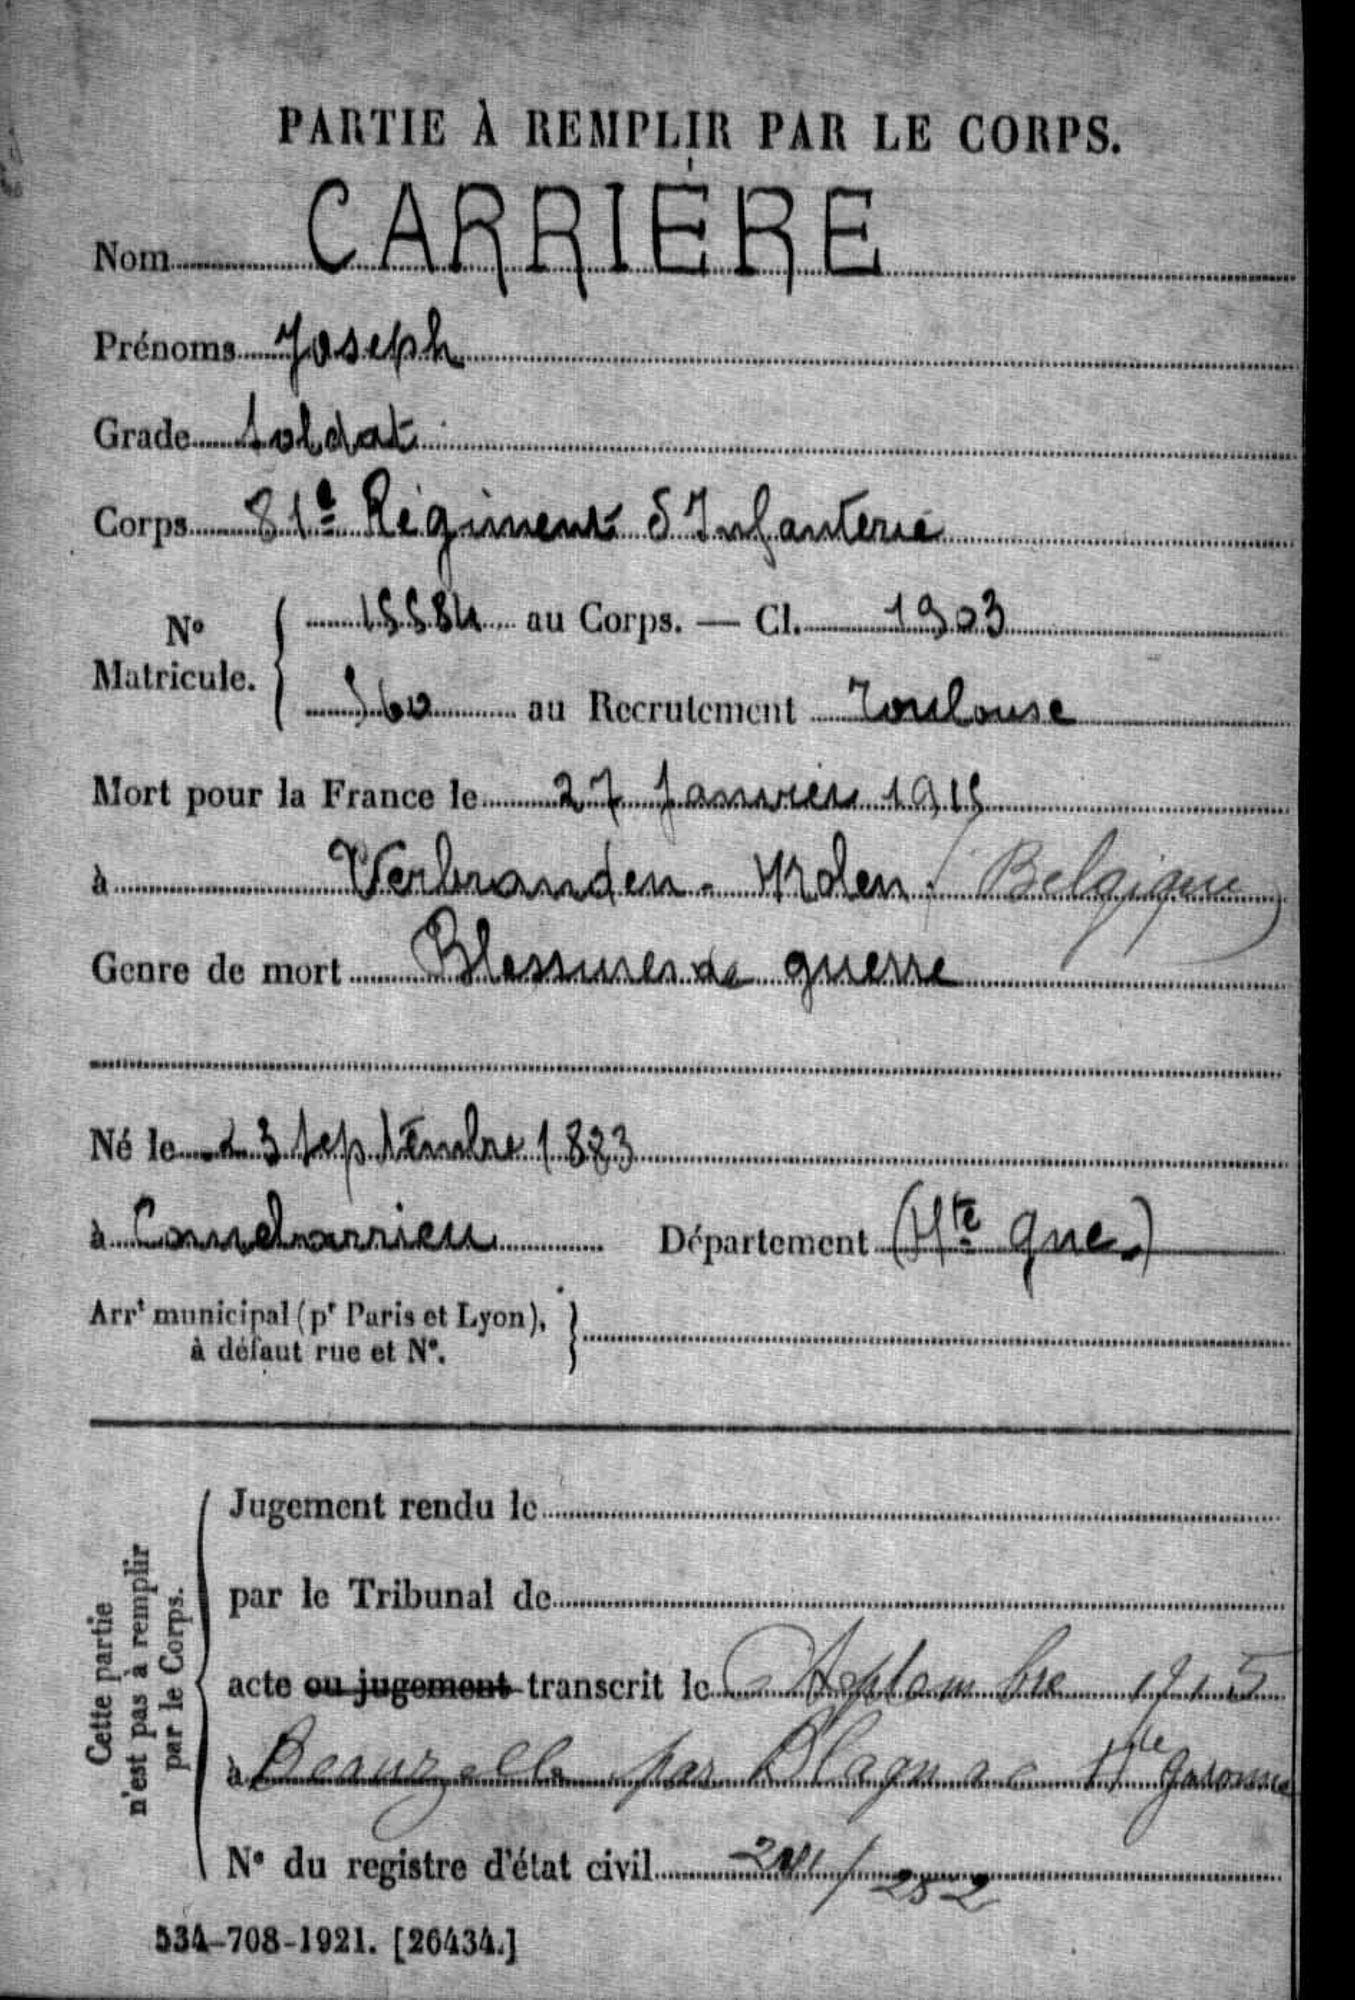 PARTIE À REMPLIR PAR LE CORPS.
Nom CARRIÈRE
Prénoms Joseph
Grade Soldat
Corps 81e Régiment d'Infanterie
No Matricule. 15584 au Corps. — Cl. 1903
560 au Recrutement Toulouse
Mort pour la France le 27 Janvier 1915
à Verbranden-Molen (Belgique)
Genre de mort Blessures de guerre
Né le 23 Septembre 1883
à Cornebarrieu Département (Hte Gne)
Arrt municipal (pr Paris et Lyon),
à défaut rue et No.
Cette partie n'est pas à remplir par le Corps.
Jugement rendu le
par le Tribunal de
acte ou jugement transcrit le Septembre 1915
à Beauzelle par Blagnac Hte Garonne
No du registre d'état civil /252
534-708-1921. [26434.]